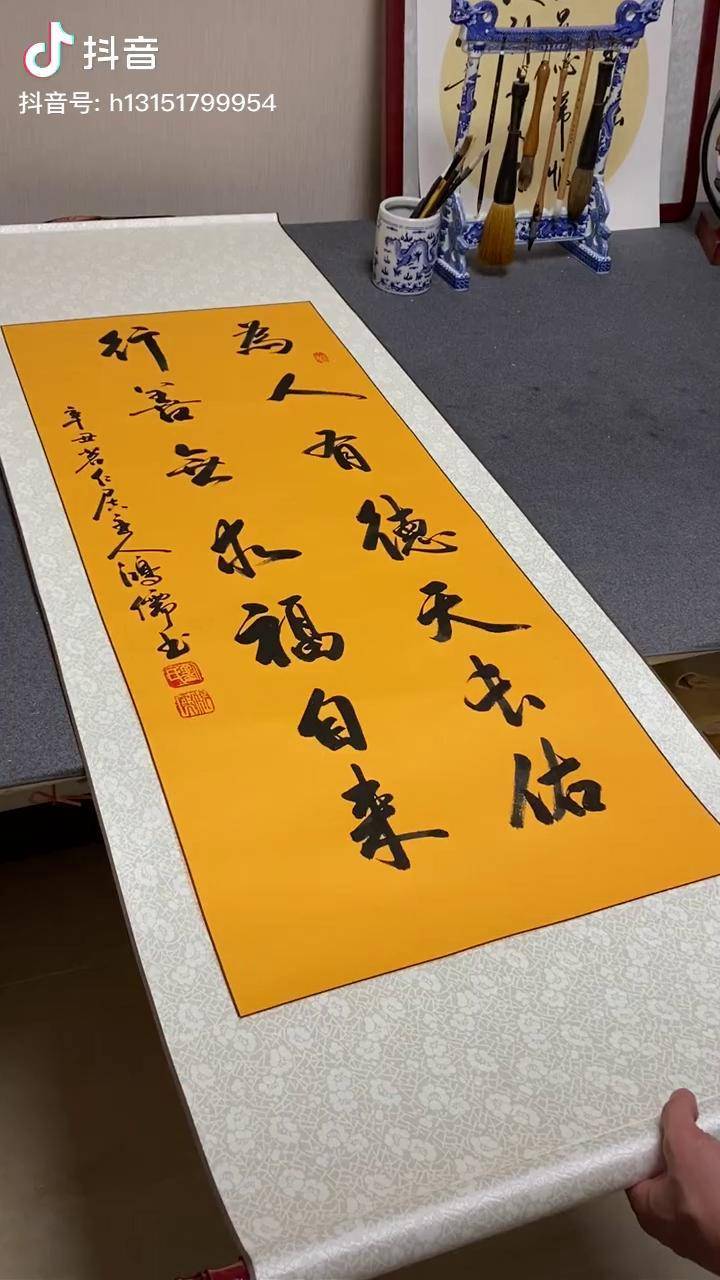 抖音
抖音号: h13151799954
為人有德天长佑
行善無求福自来
辛丑茗仁居主人鴻儒书